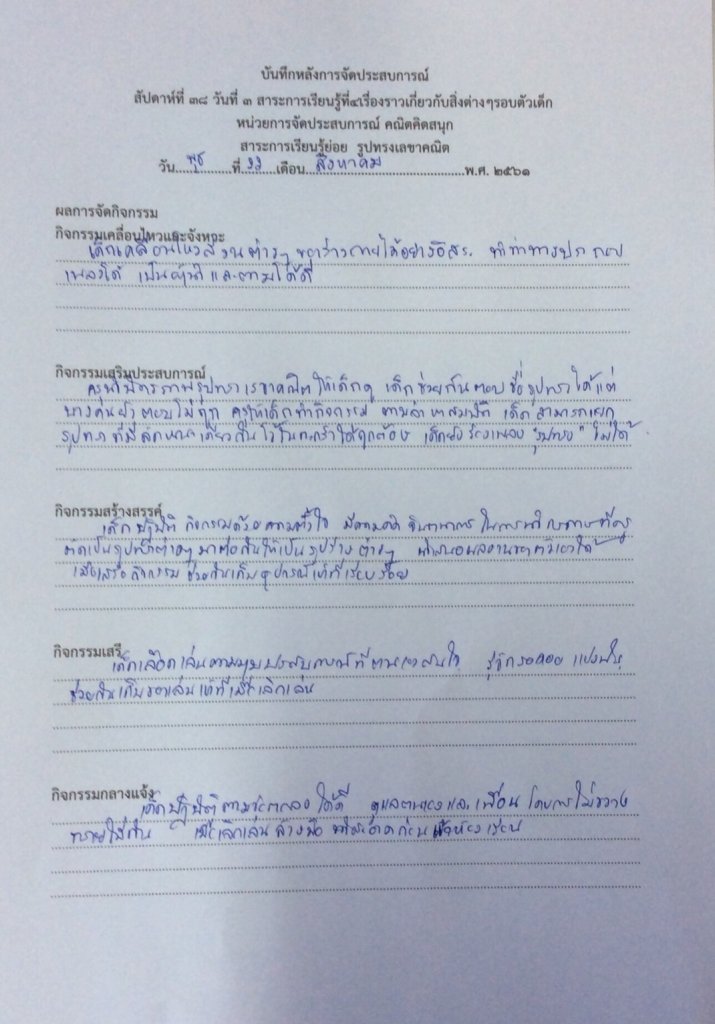 บันทึกหลังการจัดประสบการณ์
สัปดาห์ที่ ๓๘ วันที่ ๓ สาระการเรียนรู้ที่๔เรื่องราวเกี่ยวกับสิ่งต่างๆรอบตัวเด็ก
หน่วยการจัดประสบการณ์ คณิตคิดสนุก
สาระการเรียนรู้ย่อย รูปทรงเลขาคณิต
วัน พุธ ที่ เดือน สิงหาคม พ.ศ. ๒๕๖๑
ผลการจัดกิจกรรม
กิจกรรมเคลื่อนไหวและจังหวะ
เด็กเคลื่อนไหวส่วนต่างๆ ของร่างกายได้อย่างอิสระ ทำท่าทางประกอบ
เพลงได้ เป็นผู้นำและตามได้ดี
กิจกรรมเสริมประสบการณ์
ครูนำบัตรภาพรูปทรงเรขาคณิตให้เด็กดู เด็กช่วยกันตอบชื่อรูปทรงได้แต่
บางคนยังตอบไม่ถูก ครูให้เด็กทำกิจกรรม เด็กสามารถแยก
รูปทรงที่มีลักษณะเดียวกันไว้ในตะกร้าได้ถูกต้อง เด็กยังร้องเพลง "รูปทรง" ไม่ได้
กิจกรรมสร้างสรรค์
เด็กปฏิบัติกิจกรรมด้วยความตั้งใจ มีความคิดจินตนาการ ในการนำกระดาษที่ครู
ตัดเป็นรูปต่างๆ มาต่อกันให้เป็นรูปร่างต่างๆ นำเสนอผลงานของตัวเองได้
เมื่อเสร็จกิจกรรม ช่วยกันเก็บอุปกรณ์เข้าที่เรียบร้อย
กิจกรรมเสรี
เด็กเลือกเล่นตามมุมประสบการณ์ที่ตนเองสนใจ รู้จักรอคอย แบ่งปัน
ช่วยกันเก็บของเล่นเข้าที่เมื่อเลิกเล่น
กิจกรรมกลางแจ้ง
เด็กปฏิบัติตามข้อตกลงได้ดี ดูแลตนเองและเพื่อน โดยการไม่ขว้าง
ทรายใส่กัน เมื่อเลิกเล่นล้างมือ ให้สะอาดก่อนเข้าห้องเรียน